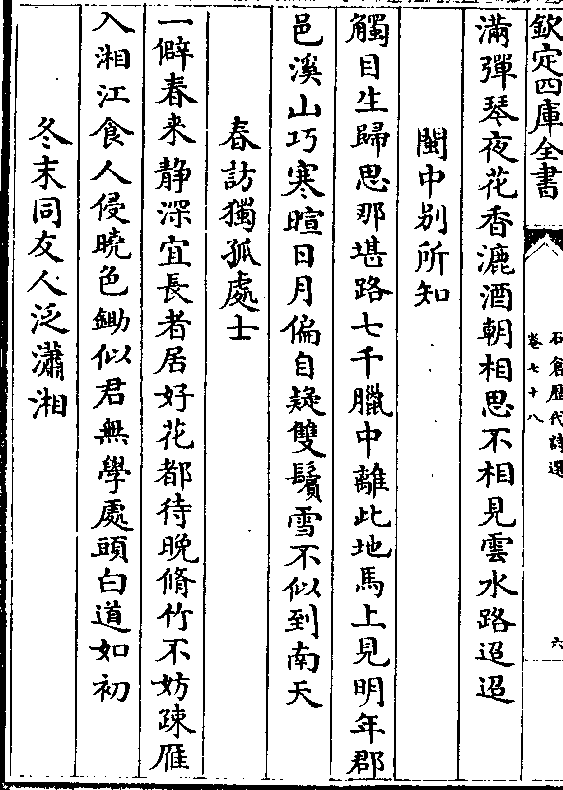 欽定四庫全書
石倉歷代詩選
卷七十八
六
滿彈琴夜花香漉酒朝相思不相見雲水路迢迢
閩中别所知
觸目生歸思那堪路七千臘中離此地馬上見明年郡
邑溪山巧寒暄日月偏自疑雙鬢雪不似到南天
春訪獨孤處士
一僻春来静深宜長者居好花都待晚脩竹不妨疎雁
入湘江食人侵曉色鋤似君無學處頭白道如初
冬末同友人泛瀟湘